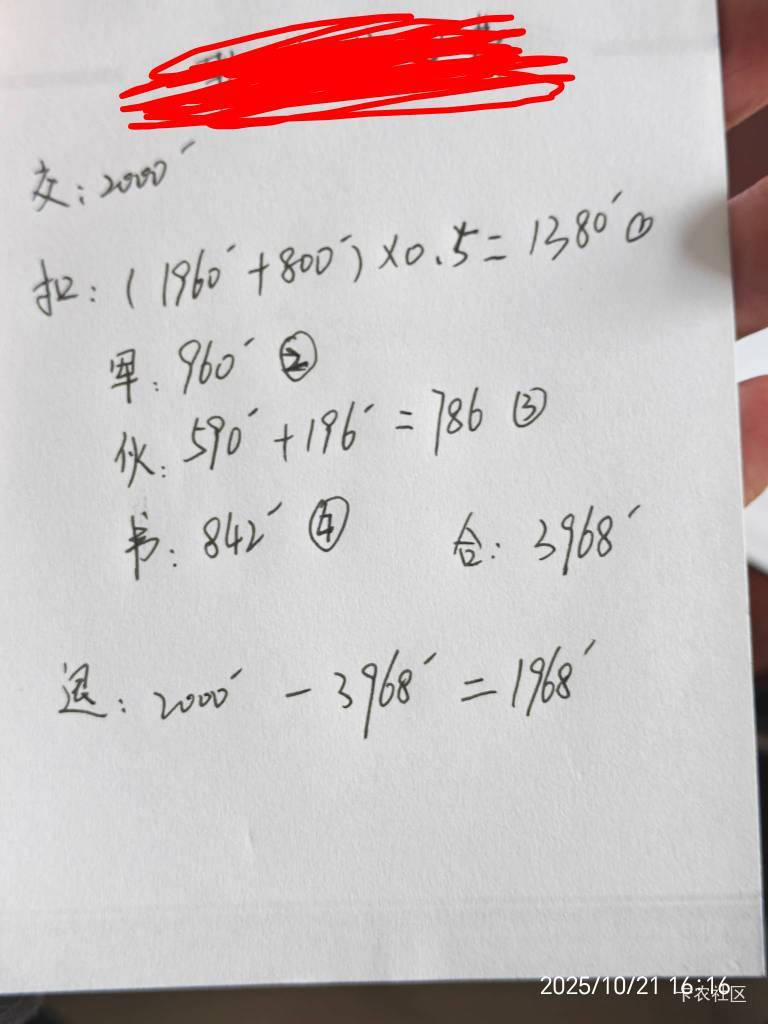 交：2000
扣：（1960+800）×0.5=1380①
军：960②
伙：590+196=786③
书：842④
合：3968
退：2000-3968=1968
2025/10/21 16:16
卡农社区